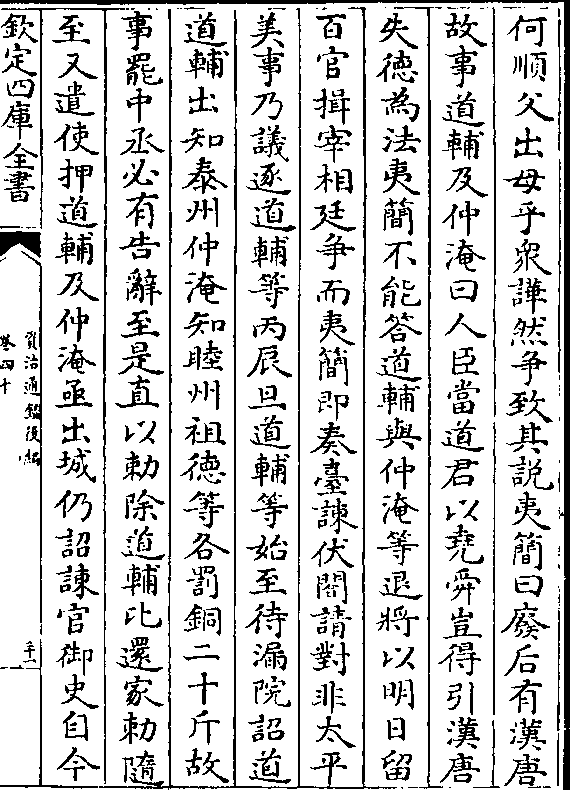 何順父出母乎衆譁然争致其説夷簡曰廢后有漢唐
故事道輔及仲淹曰人臣當道君以堯舜豈得引漢唐
失徳為法夷簡不能答道輔與仲淹等退將以明日留
百官揖宰相廷争而夷簡即奏臺諫伏閤請對非太平
美事乃議逐道輔等丙辰旦道輔等始至待漏院詔道
道輔出知泰州仲淹知睦州祖徳等各罰銅二十斤故
事罷中丞必有告辭至是直以勅除道輔比還家勅隨
至又遣使押道輔及仲淹亟出城仍詔諫官御史自今
欽定四庫全書
資治通鑑後編
卷四十